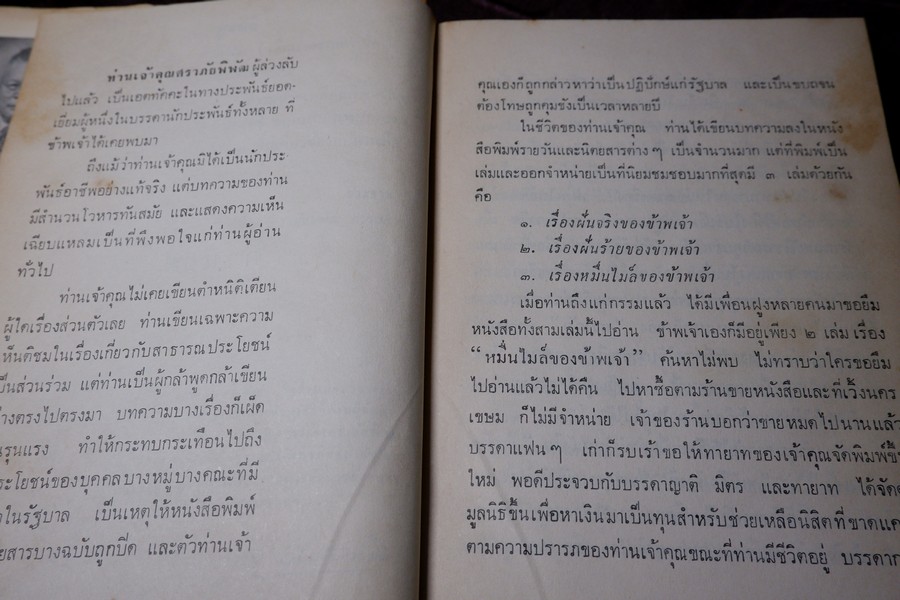 ท่านเจ้าคุณศราภัยพิพัฒ ผู้ล่วงลับ
ไปแล้ว เป็นเอตทัคคะในทางประพันธ์ยอด-
เยี่ยมผู้หนึ่งในบรรดานักประพันธ์ทั้งหลาย ที่
ข้าพเจ้าได้เคยพบมา
ถึงแม้ว่าท่านเจ้าคุณมิได้เป็นนักประ
พันธ์อาชีพอย่างแท้จริง แต่บทความของท่าน
มีสำนวนโวหารทันสมัย และแสดงความเห็น
เฉียบแหลมเป็นที่พึงพอใจแก่ท่านผู้อ่าน
ทั่วไป
ท่านเจ้าคุณไม่เคยเขียนตำหนิติเตียน
ผู้ใดเรื่องส่วนตัวเลย ท่านเขียนเฉพาะความ
ห็นติชมในเรื่องเกี่ยวกับสาธารณประโยชน์
ป็นส่วนร่วม แต่ท่านเป็นผู้กล้าพูดกล้าเขียน
างตรงไปตรงมา บทความบางเรื่องก็เผ็ด
นรุนแรง ทำให้กระทบกระเทือนไปถึง
ระโยชน์ของบุคคลบางหมู่บางคณะที่มี
ในรัฐบาล เป็นเหตุให้หนังสือพิมพ์
ยสารบางฉบับถูกปิด และตัวท่านเจ้า
คุณเองก็ถูกกล่าวหาว่าเป็นปฏิปักษ์แก่รัฐบาล และเป็นขบถจน
ต้องโทษถูกคุมขังเป็นเวลาหลายปี
ในชีวิตของท่านเจ้าคุณ ท่านได้เขียนบทความลงในหนัง
สือพิมพ์รายวันและนิตยสารต่าง ๆ เป็นจำนวนมาก แต่ที่พิมพ์เป็น
เล่มและออกจำหน่ายเป็นที่นิยมชมชอบมากที่สุดมี ๓ เล่มด้วยกัน
คือ
๑. เรื่องฝันจริงของข้าพเจ้า
๒. เรื่องฝันร้ายของข้าพเจ้า
๓. เรื่องหมื่นไมล์ของข้าพเจ้า
เมื่อท่านถึงแก่กรรมแล้ว ได้มีเพื่อนฝูงหลายคนมาขอยืม
หนังสือทั้งสามเล่มนี้ไปอ่าน ข้าพเจ้าเองก็มีอยู่เพียง ๒ เล่ม เรื่อง
“หมื่นไมล์ของข้าพเจ้า” ค้นหาไม่พบ ไม่ทราบว่าใครขอยืม
ไปอ่านแล้วไม่ได้คืน ไปหาซื้อตามร้านขายหนังสือและที่เวิ้งนคร
เขษม ก็ไม่มีจำหน่าย เจ้าของร้านบอกว่าขายหมดไปนานแล้ว
บรรดาแฟน ๆ เก่าก็รบเร้าขอให้ทายาทของเจ้าคุณจัดพิมพ์ขึ้น
ใหม่ พอดีประจวบกับบรรดาญาติ มิตร และทายาท ได้จัดต
มูลนิธิขึ้นเพื่อหาเงินมาเป็นทุนสำหรับช่วยเหลือนิสิตที่ขาดแค
ตามความปรารภของท่านเจ้าคุณขณะที่ท่านมีชีวิตอยู่ บรรดาก